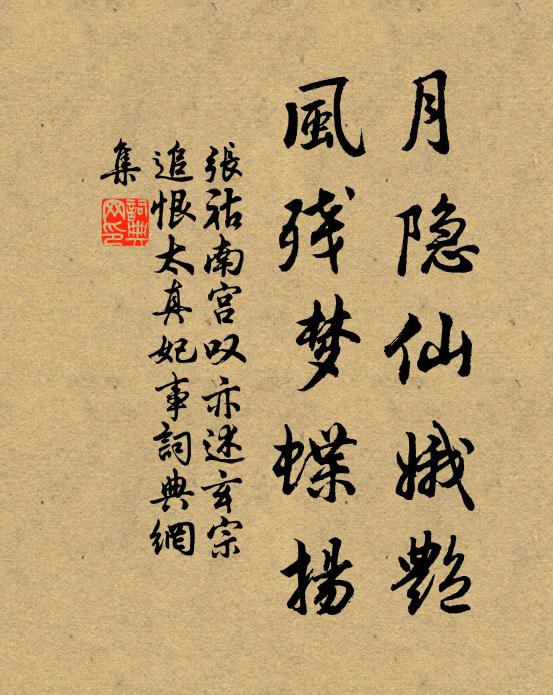 月隐仙娥艷
風残梦蝶揚
張祜南宫叹亦述玄宗
追恨太真妃事詞典網
集
詞典网印